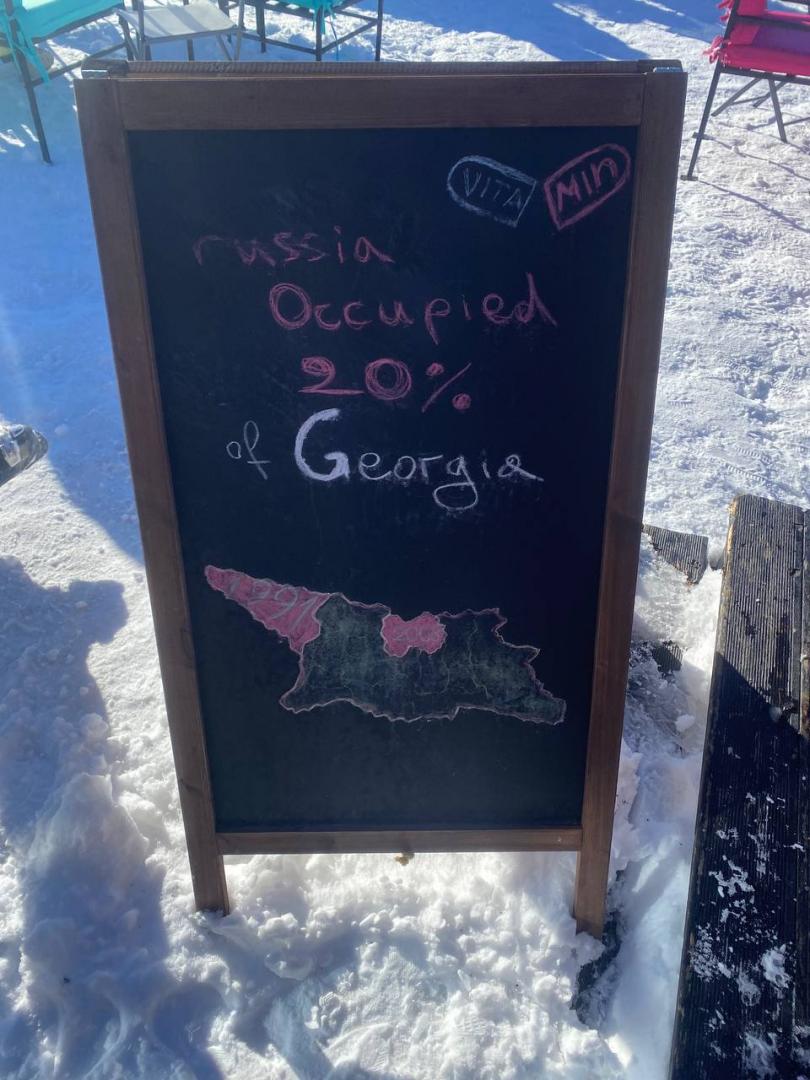 VITA MIN
russia
Occupied
20%
of Georgia
1991
2008